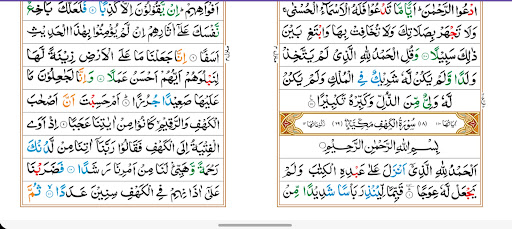 ادْعُوا الرَّحْمٰنَ ؕ اَيًّا مَّا تَدْعُوْا فَلَهُ الْاَسْمَآءُ الْحُسْنٰى ۚ
وَلَا تَجْهَرْ بِصَلَاتِكَ وَلَا تُخَافِتْ بِهَا وَابْتَغِ بَيْنَ
ذٰلِكَ سَبِيْلًا ۝ وَقُلِ الْحَمْدُ لِلّٰهِ الَّذِيْ لَمْ يَتَّخِذْ
وَلَدًا وَّلَمْ يَكُنْ لَّهٗ شَرِيْكٌ فِي الْمُلْكِ وَلَمْ يَكُنْ
لَّهٗ وَلِيٌّ مِّنَ الذُّلِّ وَكَبِّرْهُ تَكْبِيْرًا ۝
(١٨) سُوْرَةُ الْكَهْفِ مَكِّيَّةٌ (٦٩)
بِسْمِ اللّٰهِ الرَّحْمٰنِ الرَّحِيْمِ
اَلْحَمْدُ لِلّٰهِ الَّذِيْٓ اَنْزَلَ عَلٰى عَبْدِهِ الْكِتٰبَ وَلَمْ
يَجْعَلْ لَّهٗ عِوَجًا ۝ قَيِّمًا لِّيُنْذِرَ بَاْسًا شَدِيْدًا مِّنْ
اَفْوَاهِهِمْ ؕ اِنْ يَّقُوْلُوْنَ اِلَّا كَذِبًا ۝ فَلَعَلَّكَ بَاخِعٌ
نَّفْسَكَ عَلٰٓى اٰثَارِهِمْ اِنْ لَّمْ يُؤْمِنُوْا بِهٰذَا الْحَدِيْثِ
اَسَفًا ۝ اِنَّا جَعَلْنَا مَا عَلَى الْاَرْضِ زِيْنَةً لَّهَا
لِنَبْلُوَهُمْ اَيُّهُمْ اَحْسَنُ عَمَلًا ۝ وَاِنَّا لَجٰعِلُوْنَ مَا
عَلَيْهَا صَعِيْدًا جُرُزًا ۝ اَمْ حَسِبْتَ اَنَّ اَصْحٰبَ
الْكَهْفِ وَالرَّقِيْمِ كَانُوْا مِنْ اٰيٰتِنَا عَجَبًا ۝ اِذْ اَوَى
الْفِتْيَةُ اِلَى الْكَهْفِ فَقَالُوْا رَبَّنَآ اٰتِنَا مِنْ لَّدُنْكَ
رَحْمَةً وَّهَيِّئْ لَنَا مِنْ اَمْرِنَا رَشَدًا ۝ فَضَرَبْنَا
عَلٰٓى اٰذَانِهِمْ فِي الْكَهْفِ سِنِيْنَ عَدَدًا ۝ ثُمَّ